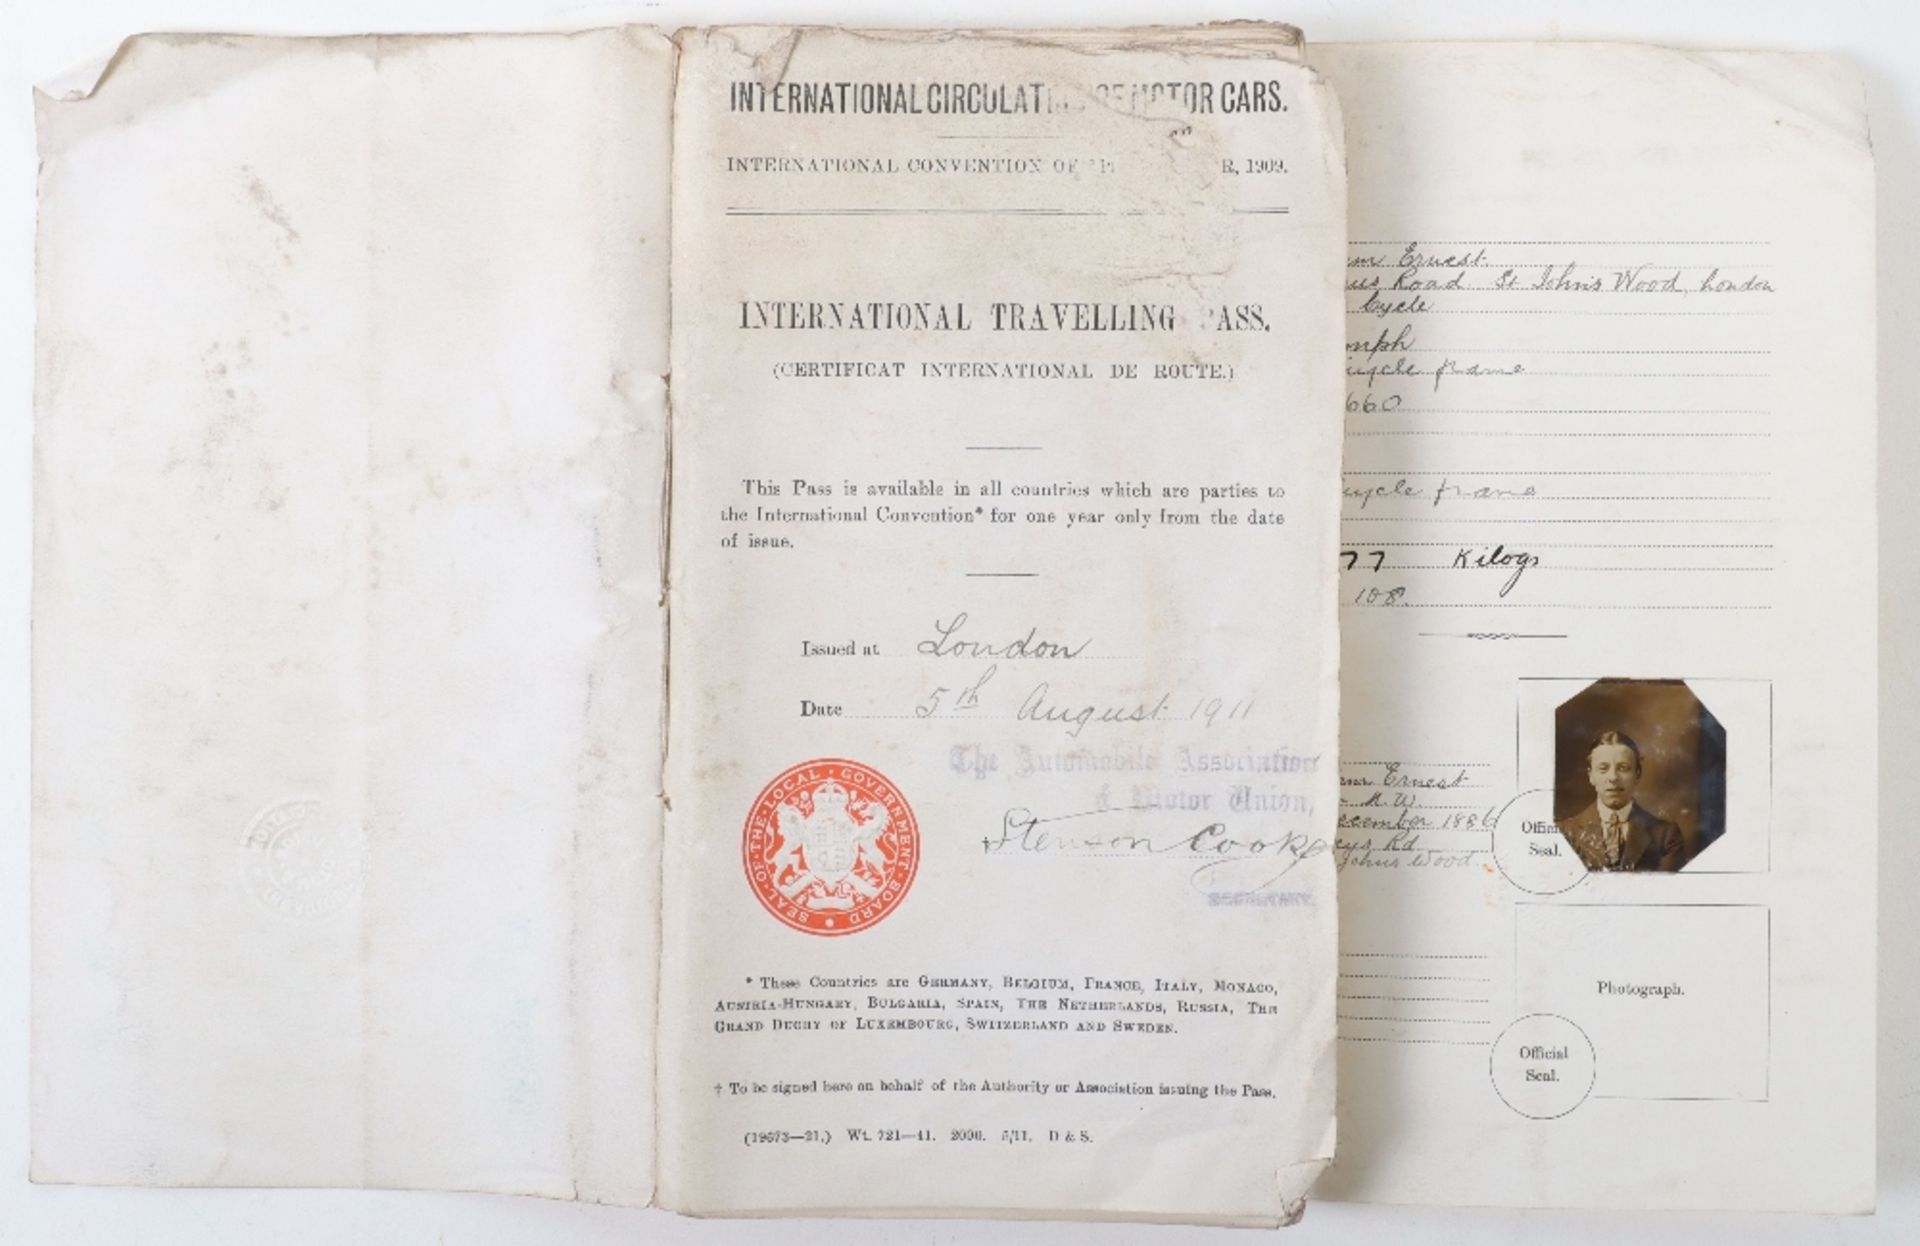 INTERNATIONAL CIRCULATI MOTOR CARS.
INTERNATIONAL CONVENTION OF R, 1909.
INTERNATIONAL TRAVELLING PASS.
(CERTIFICAT INTERNATIONAL DE ROUTE.)
This Pass is available in all countries which are parties to
the International Convention* for one year only from the date
of issue.
Issued at London
Date 5th August 1911
The Automobile Association
& Motor Union,
† Stenson Cooke
SECRETARY.
SEAL·OF·THE·LOCAL·GOVERNMENT·BOARD
* These Countries are Germany, Belgium, France, Italy, Monaco,
Austria-Hungary, Bulgaria, Spain, The Netherlands, Russia, The
Grand Duchy of Luxembourg, Switzerland and Sweden.
† To be signed here on behalf of the Authority or Association issuing the Pass.
(19673—21.) Wt. 721—41. 2000. 5/11. D & S.
Ernest.
Road St Johns Wood, London
Cycle
mph
cycle frame
660
cycle frame
77 Kilogs
108.
Ernest
N. W.
ecember 1886
Rd
Johns Wood
Official
Seal.
Photograph.
Official
Seal.